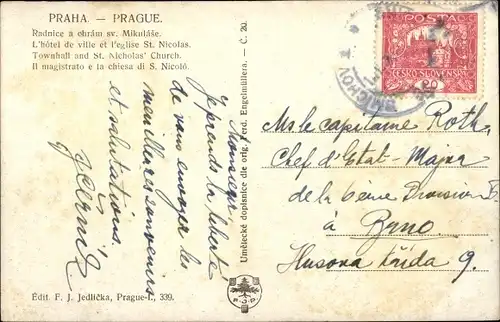 PRAHA. — PRAGUE.
Radnice a chrám sv. Mikuláše.
L'hôtel de ville et l'eglise St. Nicolas.
Townhall and St. Nicholas' Church.
Il magistrato e la chiesa di S. Nicoló.
Monsieur,
Je prends la liberté
de vous envoyer les
meilleures souvenirs
et salutations.
JČerník
Édit. F. J. Jedlička, Prague-I., 339.
Umělecké dopisnice dle orig. Ferd. Engelmüllera. — Č. 20.
F J P
POSTA
ČESKO-SLOVENSKÁ
20
Ms le capitaine Roth,
Chef d'Etat-Major
de la 6ème Division
à Brno
Husova třída 9.